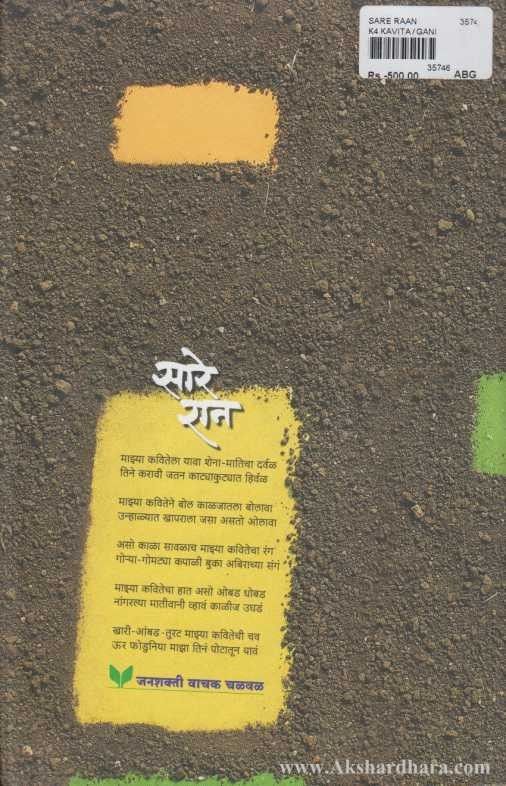 SARE RAAN 3574
K4 KAVITA / GANI
35746
Rs.-500.00 ABG
सारे
रान
माझ्या कवितेला यावा शेना-मातिचा दर्वळ
तिने करावी जतन काट्याकुट्यात हिर्वळ
माझ्या कवितेने बोल काळजातला बोलावा
उन्हाळ्यात खापराला जसा असतो ओलावा
असो काळा सावळाच माझ्या कवितेचा रंग
गोऱ्या-गोमट्या कपाळी बुका अबिराच्या संगं
माझ्या कवितेचा हात असो ओबड धोबड
नांगरल्या मातीवानी व्हावं काळीज उघडं
खारी-आंबड-तुरट माझ्या कवितेची चव
ऊर फोडुनिया माझा तिनं पोटातून यावं
जनशक्ती वाचक चळवळ
www.Akshardhara.com